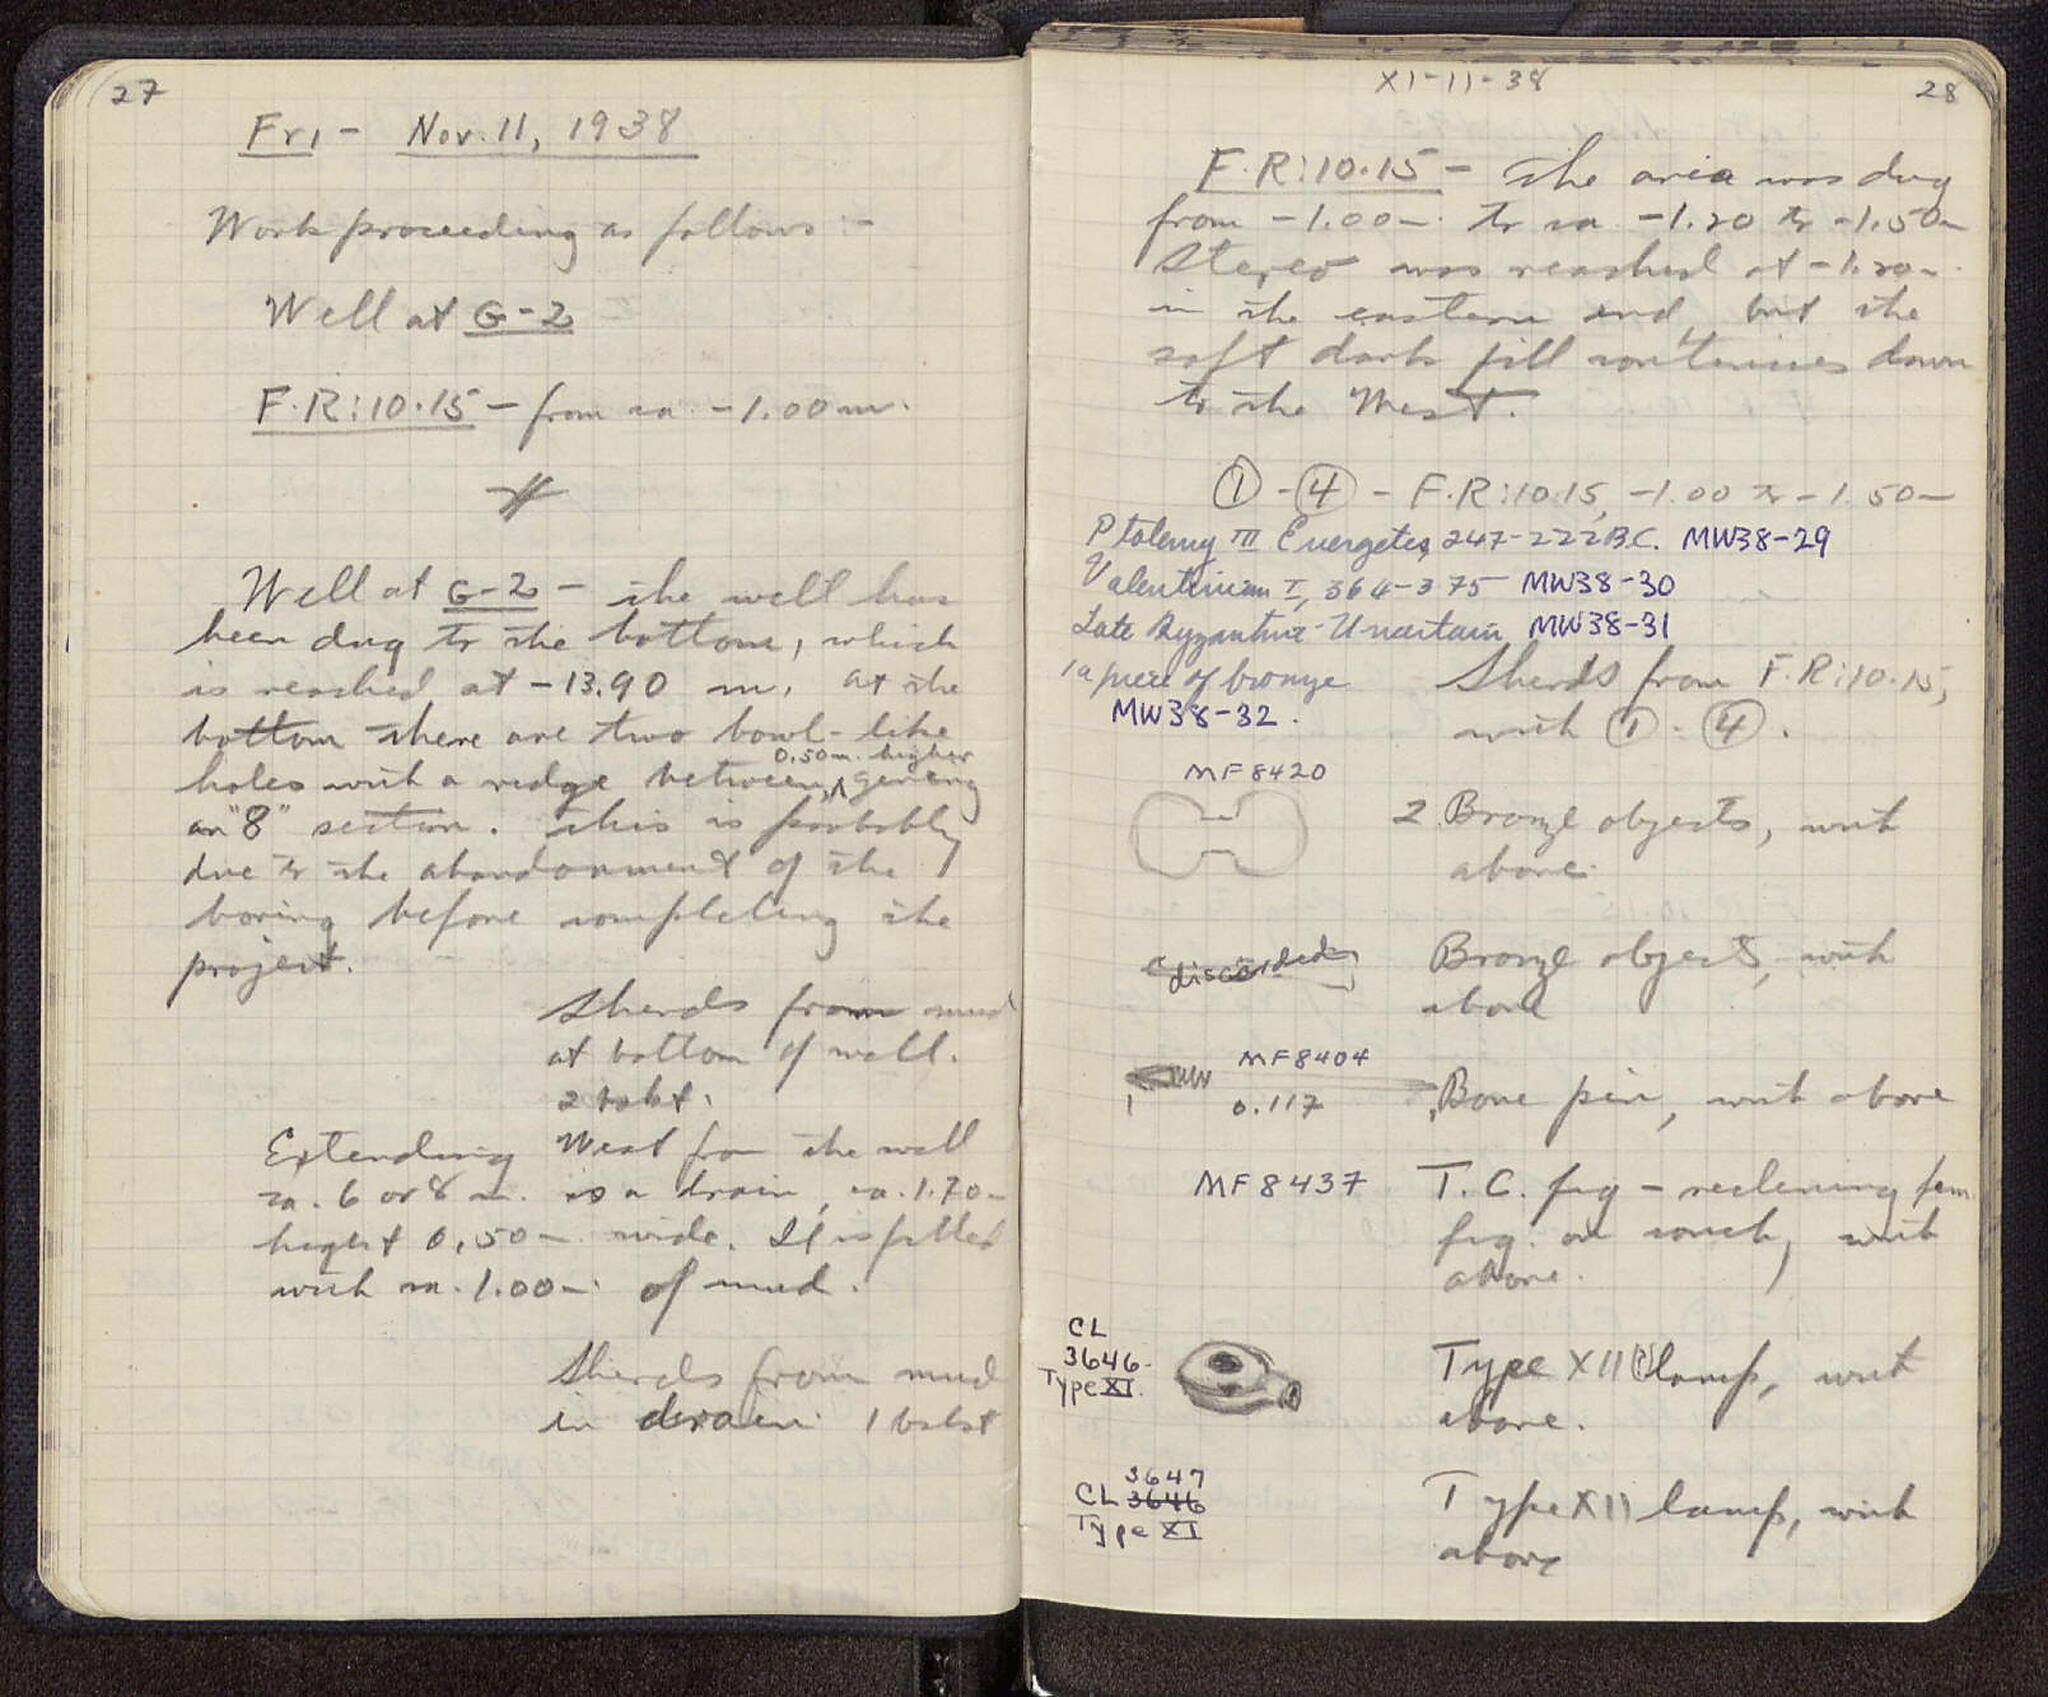 27
Fri - Nov. 11, 1938
Work proceeding as follows :-
Well at G-2
F.R:10.15 - from ca. -1.00 m.
Well at G-2 - The well has
been dug to the bottom, which
is reached at -13.90 m. At the
bottom there are two bowl-like
0.50 m. higher
holes with a redge between, ∧ giveng
an "8" section. This is probably
due to the abandonment of the
boring before completeng the
project.
Sherds from mud
at bottom of well.
2 bskt.
Extending West from the well
ca. 6 or 8 m. is a drain, ca. 1.70 m
height 0.50 m wide. It is filled
with ca. 1.00 m. of mud.
Sherds from mud
in drain. 1 bskt
XI-11-38
28
F.R:10.15 - The area was dug
from -1.00 m. to ca. -1.20 to -1.50 m
Stereo was reached at -1.20 m.
in the eastern end, but the
soft dark fill continues down
to the West.
① - ④ - F.R:10.15, -1.00 to -1.50 m
Ptolemy III Euergetes, 247-222 B.C. MW38-29
Valentinian I, 364-375 MW38-30
Late Byzantine - Uncertain MW38-31
1 a piece of bronze
MW38-32.
Sherds from F.R:10.15,
with ① - ④.
MF 8420
2 Bronze objects, with
above.
discarded
Bronze objects, with
above
MF 8404
0.117
Bone pin, with above
MF 8437
T.C. fig - reclening fem.
fig. on couch, with
above.
CL
3646-
Type XI.
Type XII lamp, with
above.
3647
CL 3646
Type XI
Type XII lamp, with
above